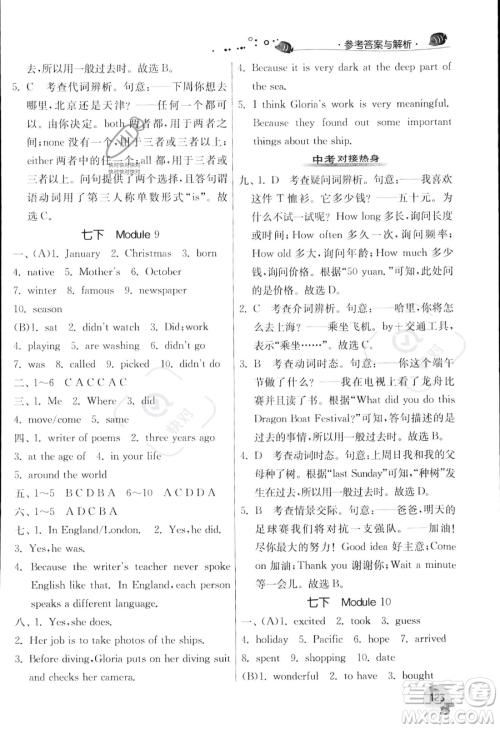 参考答案与解析
去，所以选没去过。故选B。
5. C 考查代词辨析。句意：你想去
哪里，北京还是天津？both 两者都
;none 没有一个，用于三者或
三者以上；all 都，用于三者以上；
either 两者中的任何一个。答句谓
语动词用了第三人称单数形式“is”。
故选C。
七下 Module 9
一、(A)1. January 2. Christmas 3. born
4. native 5. Mother's 6. October
7. winter 8. famous 9. newspaper
10. season
(B)1. sat 2. didn't watch 3. Did; work
4. playing 5. are washing 6. didn't go
7. was 8. called 9. picked 10. did
二、1～6 CACCCC
三、1. Were; wasn't 2. Where did 3. did
4. move/come 5. started
四、1. writer of poems 2. three years ago
3. at the age of 4. around the world
五、1～5 BCDBA 6～10 ACDCD
六、1～5 ACDBA
七、1. In England/London. 2. Yes, he did.
3. Yes, he was.
4. Because the writer's teacher never spoke
English like that. In England, each person
speaks a different language.
八、1. Yes, she does.
2. Her job is to take photos of the ships.
3. Before diving, Gloria puts on a diving suit
and checks her camera.
4. Because it is very dark at the deep part of
the sea.
5. I think Gloria's work is very meaningful.
Because they found out some important
things about the ship.
中考对接热身
九、1. D 考查疑问词辨析。句意：我喜欢
这件T恤衫。它多少钱？——五十元。
How long 多长，询问时间；How
often 多久一次，询问动作频率；
How old 多大，询问年龄；How
much 多少钱，询问价格。根据“50 yuan.”可
知，询问价格。故选D。
2. C 考查介词辨析。句意：——哈里，你将
怎么去上海？——乘坐飞机。by＋交通工具，
表示“乘坐……”。故选C。
3. B 考查动词时态。句意：——你这个端午
节做了什么？——我看了龙舟比赛
并且读了书。根据“What did you do this
Dragon Boat Festival?”可知，答句描述的是
过去的事情，应用一般过去时。故选B。
4. D 考查动词时态。句意：上周日我和叔
叔种了树。根据“last Sunday”可知，“种树”
发生在过去，应用一般过去时。故选D。
5. B 考查情景交际。句意：——爸爸，明天的
足球赛我们将对抗一支强队。——加油！
尽你最大努力! Good idea 好主意; Come
on 加油; Thank you 谢谢你; Wait a minute
等一会儿。故选B。
七下 Module 10
一、(A)1. excited 2. tour 3. guide
4. holiday 5. Pacific 6. hope 7. arrived
8. spend 9. sold 10. Top
(B)1. wonderful 2. to have 3. bought
123